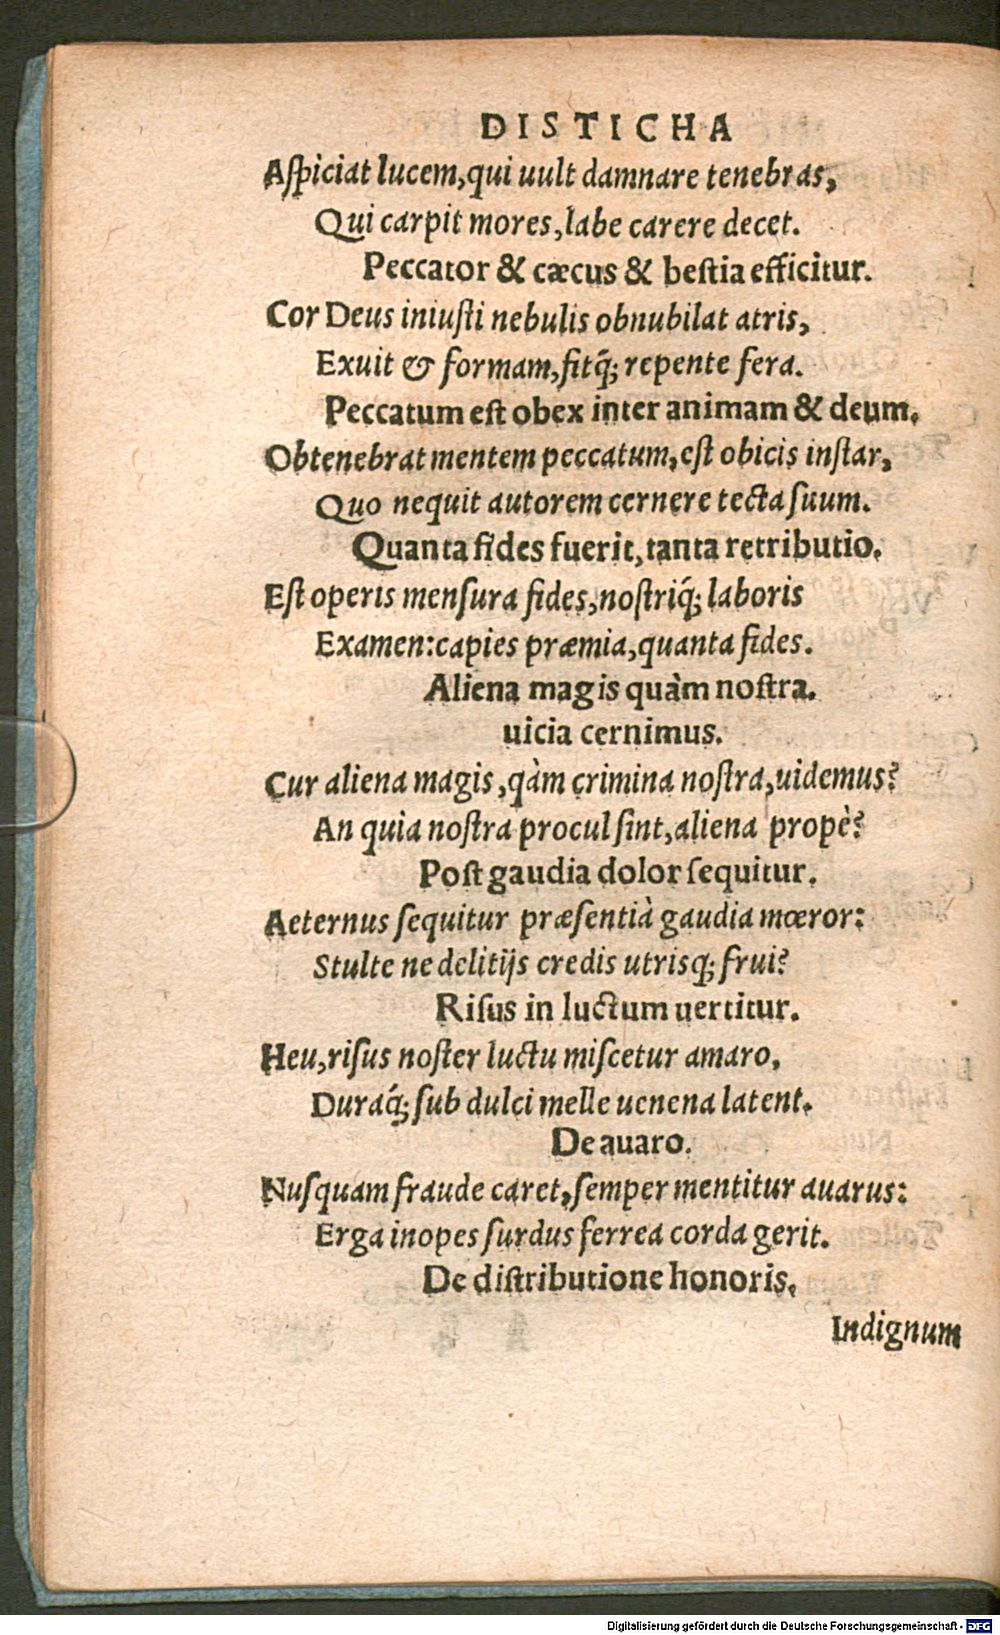 DISTICHA
Aſpiciat lucem, qui uult damnare tenebras,
Qui carpit mores, labe carere decet.
Peccator & cæcus & beſtia efficitur.
Cor Deus iniuſti nebulis obnubilat atris,
Exuit & formam, fitq́; repente fera.
Peccatum eſt obex inter animam & deum.
Obtenebrat mentem peccatum, eſt obicis inſtar,
Quo nequit autorem cernere tecta ſuum.
Quanta fides fuerit, tanta retributio.
Eſt operis menſura fides, noſtriq́; laboris
Examen: capies præmia, quanta fides.
Aliena magis quàm noſtra.
uicia cernimus.
Cur aliena magis, qàm crimina noſtra, uidemus?
An quia noſtra procul ſint, aliena propè?
Poſt gaudia dolor ſequitur.
Aeternus ſequitur præſentià gaudia mœror:
Stulte ne delitijs credis utrisq; frui?
Riſus in luctum uertitur.
Heu, riſus noſter luctu miſcetur amaro,
Duraq́; ſub dulci melle uenena latent.
De auaro.
Nuſquam fraude caret, ſemper mentitur auarus:
Erga inopes ſurdus ferrea corda gerit.
De diſtributione honoris.
Indignum
Digitalisierung gefördert durch die Deutsche Forschungsgemeinschaft - DFG